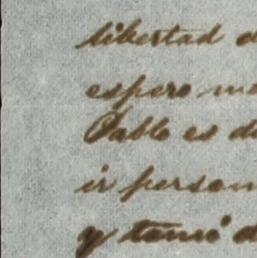 libertad d
espero me
Pablo es d
ir person
y tomó d